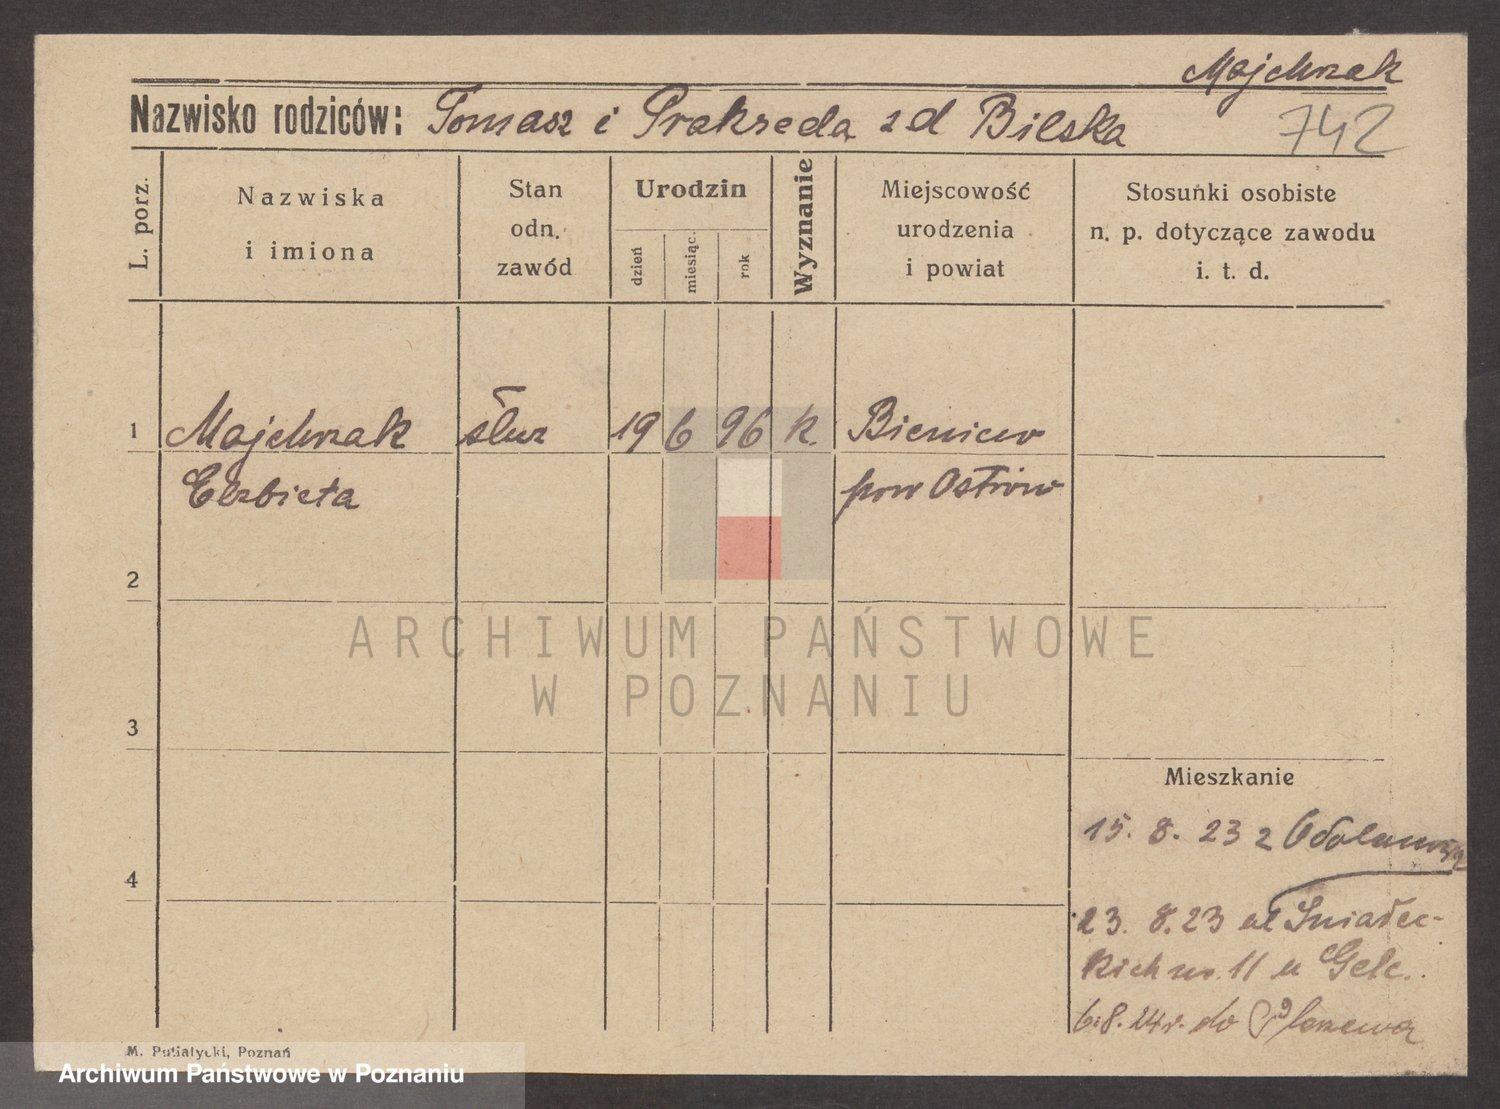 Majchrzak
Nazwisko rodziców: Tomasz i Prakseda zd Bilska
742
L. porz.
Nazwiska
i imiona
Stan
odn.
zawód
Urodzin
dzień
miesiąc.
rok
Wyznanie
Miejscowość
urodzenia
i powiat
Stosunki osobiste
n. p. dotyczące zawodu
i. t. d.
1 Majchrzak służ 19 6 96 k. Bieniew
Elżbieta pow Ostrów
2
ARCHIWUM PAŃSTWOWE
W POZNANIU
3
Mieszkanie
15. 8. 23 z Odolanowa
4
23. 8. 23 ul Śniadec-
kich nr. 11 u
6.8.24r. do Pleszewa
M. Putiatycki, Poznań
Archiwum Państwowe w Poznaniu